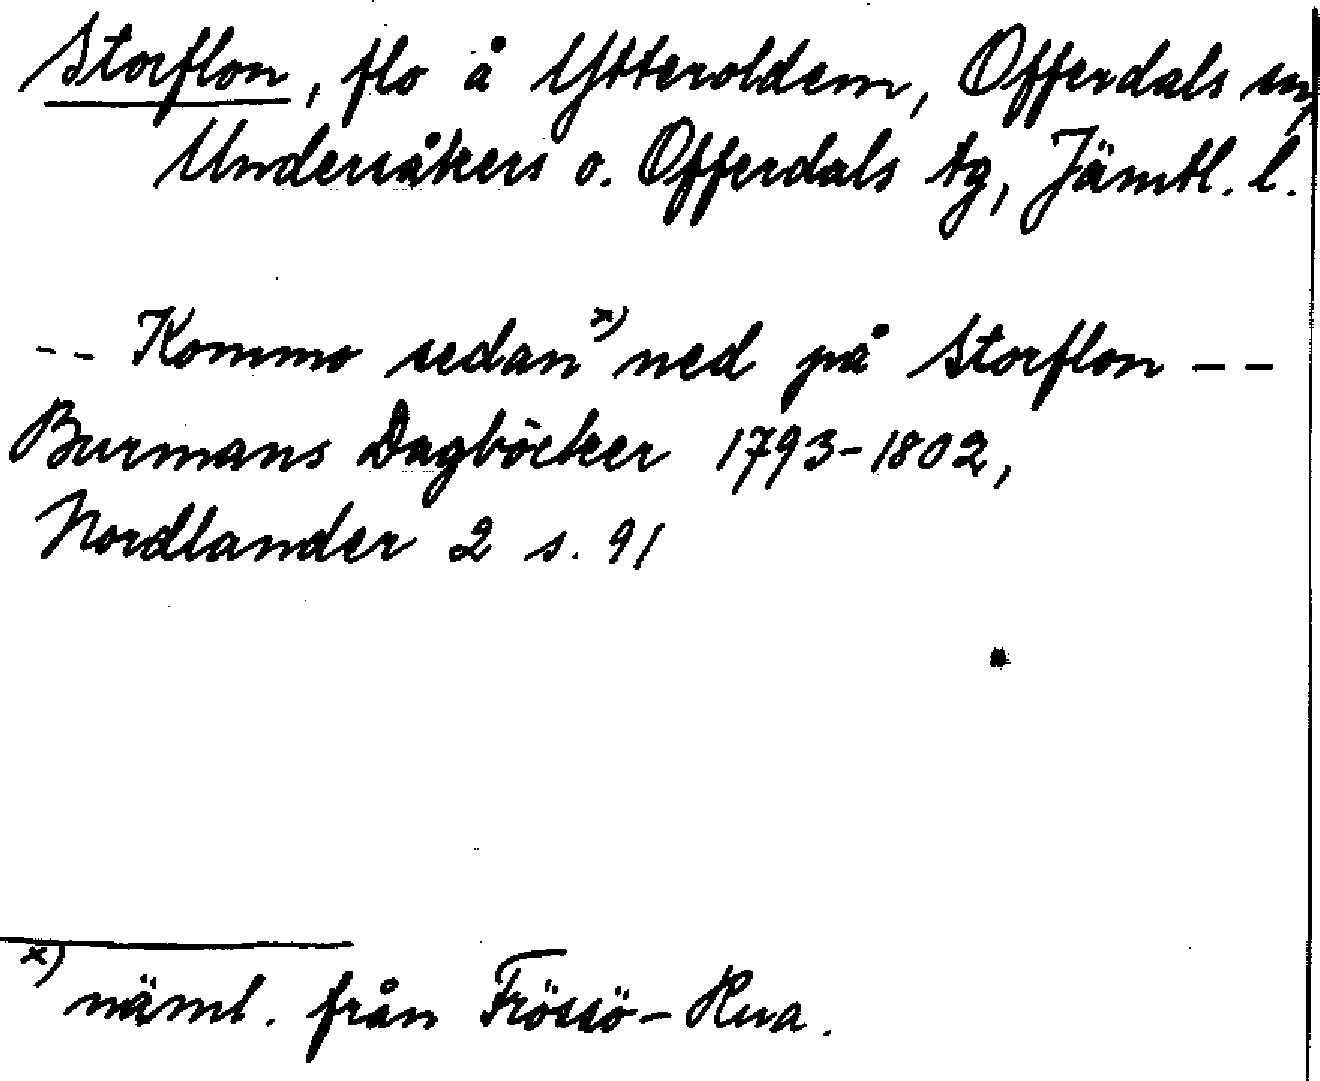 Storflon, flo å Ytteroldern, Offerdals sn,
Undersåkers o. Offerdals tg, Jämtl. l.
-- Kommo sedan x) ned på Storflon --
Burmans Dagböcker 1793-1802,
Nordlander 2 s. 91
x) näml. från Frössö-Hua.